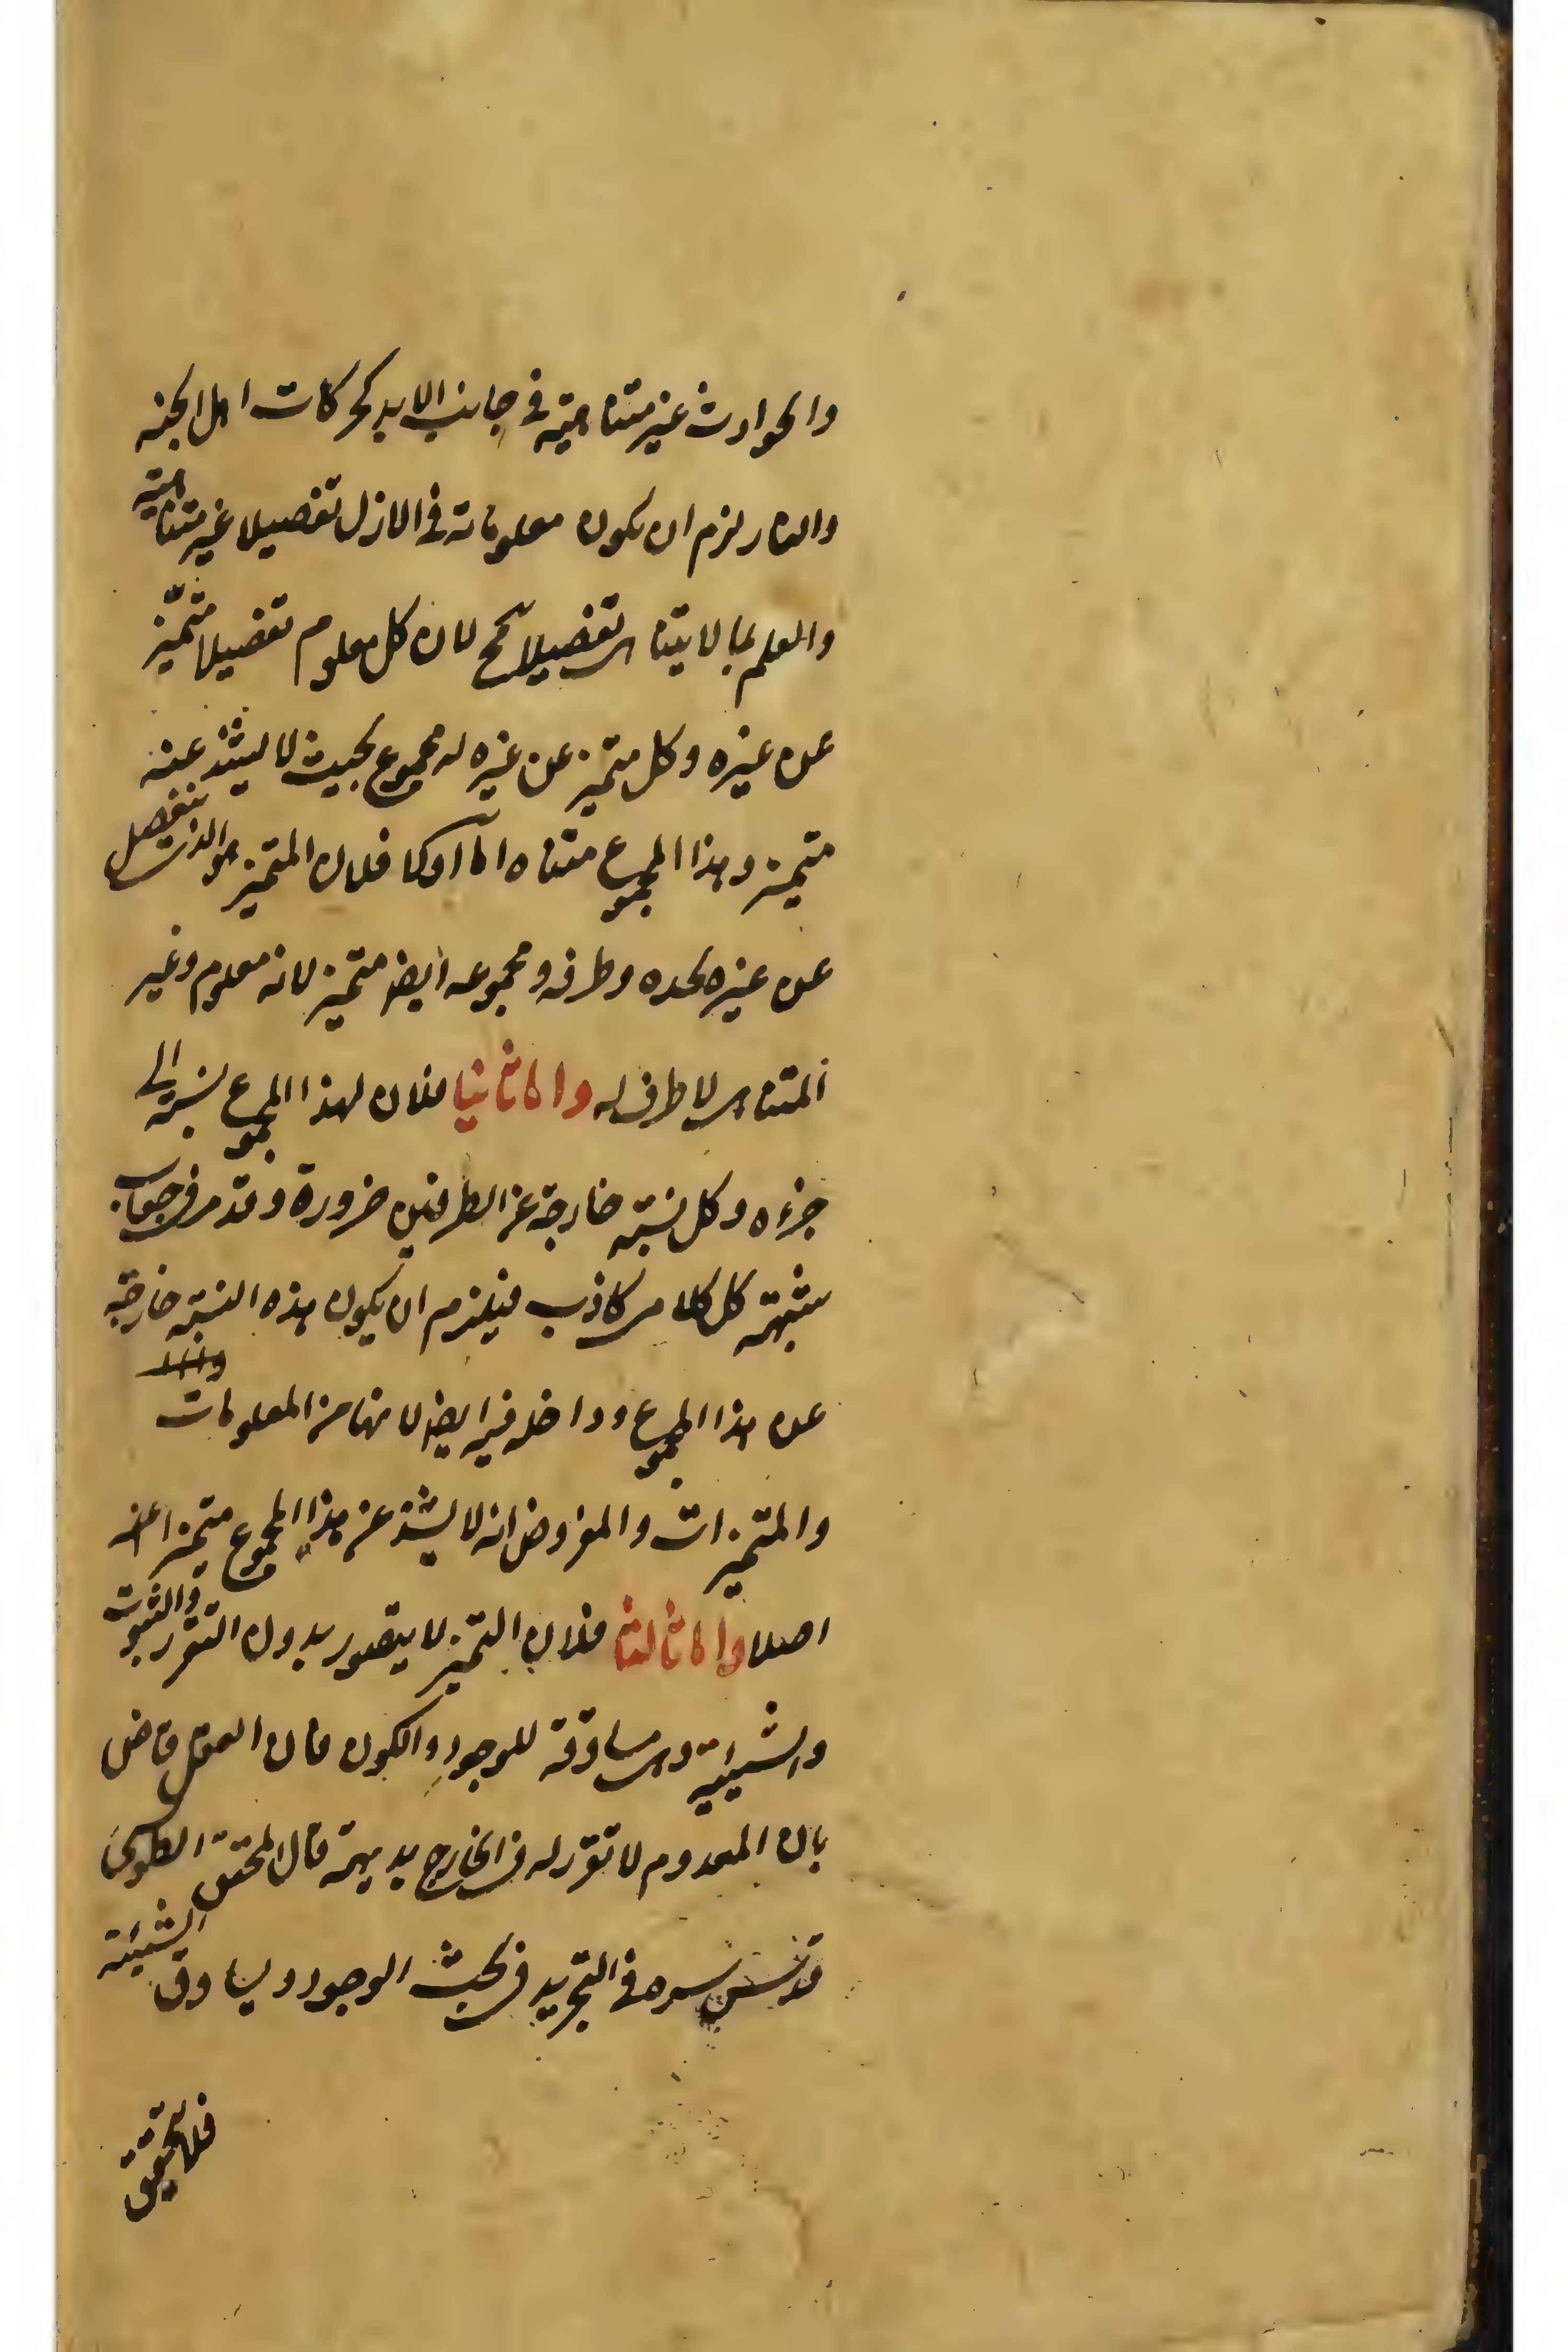 والحوادث غير متناهية في جانب الابد كحركات اهل الجنه
والنار لزم ان يكون معلوماته في الازل تفصيلا غير متناهية
والعلم بما لا يتناهى تفصيلا مح لان كل معلوم تفصيلا متميّز
عن غيره وكل متميز عن غيره له مجموع بحيث لا يشذ عنه
متميز وهذا المجموع متناه اما اولا فلان المتميز هو الذي ينفصل
عن غيره بحده وطرفه ومجموعه ايضا متميز لانه معلوم وغير
المتناهى لا طرف له واما ثانيا فلان لهذا المجموع نسبة الى
جزءه وكل نسبة خارجة عن الطرفين ضرورة وقد مر في جواب
شبهة كل كلامى كاذب فيلزم ان يكون هذه النسبة خارجة
عن هذا المجموع وداخله فيه ايضا لانها من المعلومات
والمتميزات والمفروض انه لا يشذ عن هذا المجموع متميزا عنه
اصلا واما ثالثا فلان التميز لا يتصور بدون التقرر والثبوت
والشيئية وهى مساوقة للوجود والكون فان العقل قاض
بان المعدوم لا تقرر له في الخارج بديهة قال المحقق الطوسى
قدس سره في التجريد في بحث الوجود ويساوق الشيئية
فلا تحقق